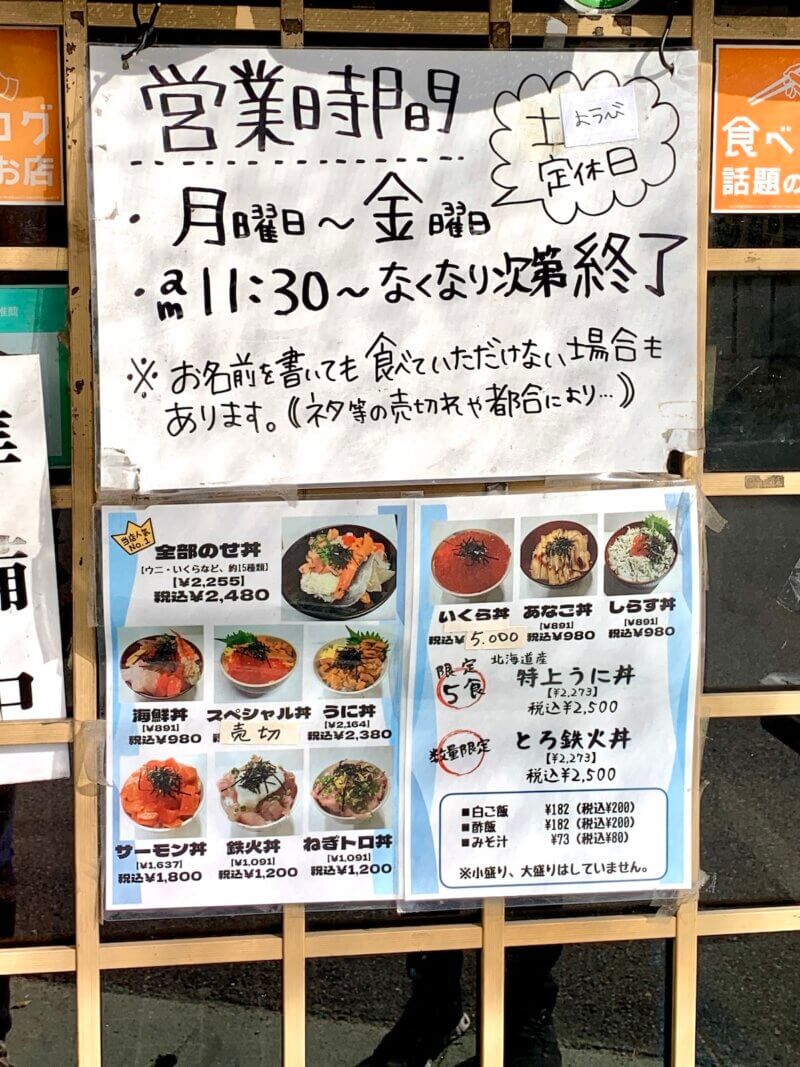 営業時間
土ようび
定休日
・月曜日～金曜日
・am11:30～なくなり次第終了
※お名前を書いても食べていただけない場合も
あります。《ネタ等の売切れや都合により…》
グ
お店
食べ
話題の
当店人気
No.1
全部のせ丼
【ウニ・いくらなど、約15種類】
【¥2,255】
税込¥2,480
海鮮丼
【¥891】
税込¥980
スペシャル丼
売切
うに丼
【¥2,164】
税込¥2,380
サーモン丼
【¥1,637】
税込¥1,800
鉄火丼
【¥1,091】
税込¥1,200
ねぎトロ丼
【¥1,091】
税込¥1,200
いくら丼
税込¥5,000
あなご丼
【¥891】
税込¥980
しらす丼
【¥891】
税込¥980
限定
5食
北海道産
特上うに丼
【¥2,273】
税込¥2,500
数量限定
とろ鉄火丼
【¥2,273】
税込¥2,500
■白ご飯 ¥182（税込¥200）
■酢飯 ¥182（税込¥200）
■みそ汁 ¥73（税込¥80）
※小盛り、大盛りはしていません。